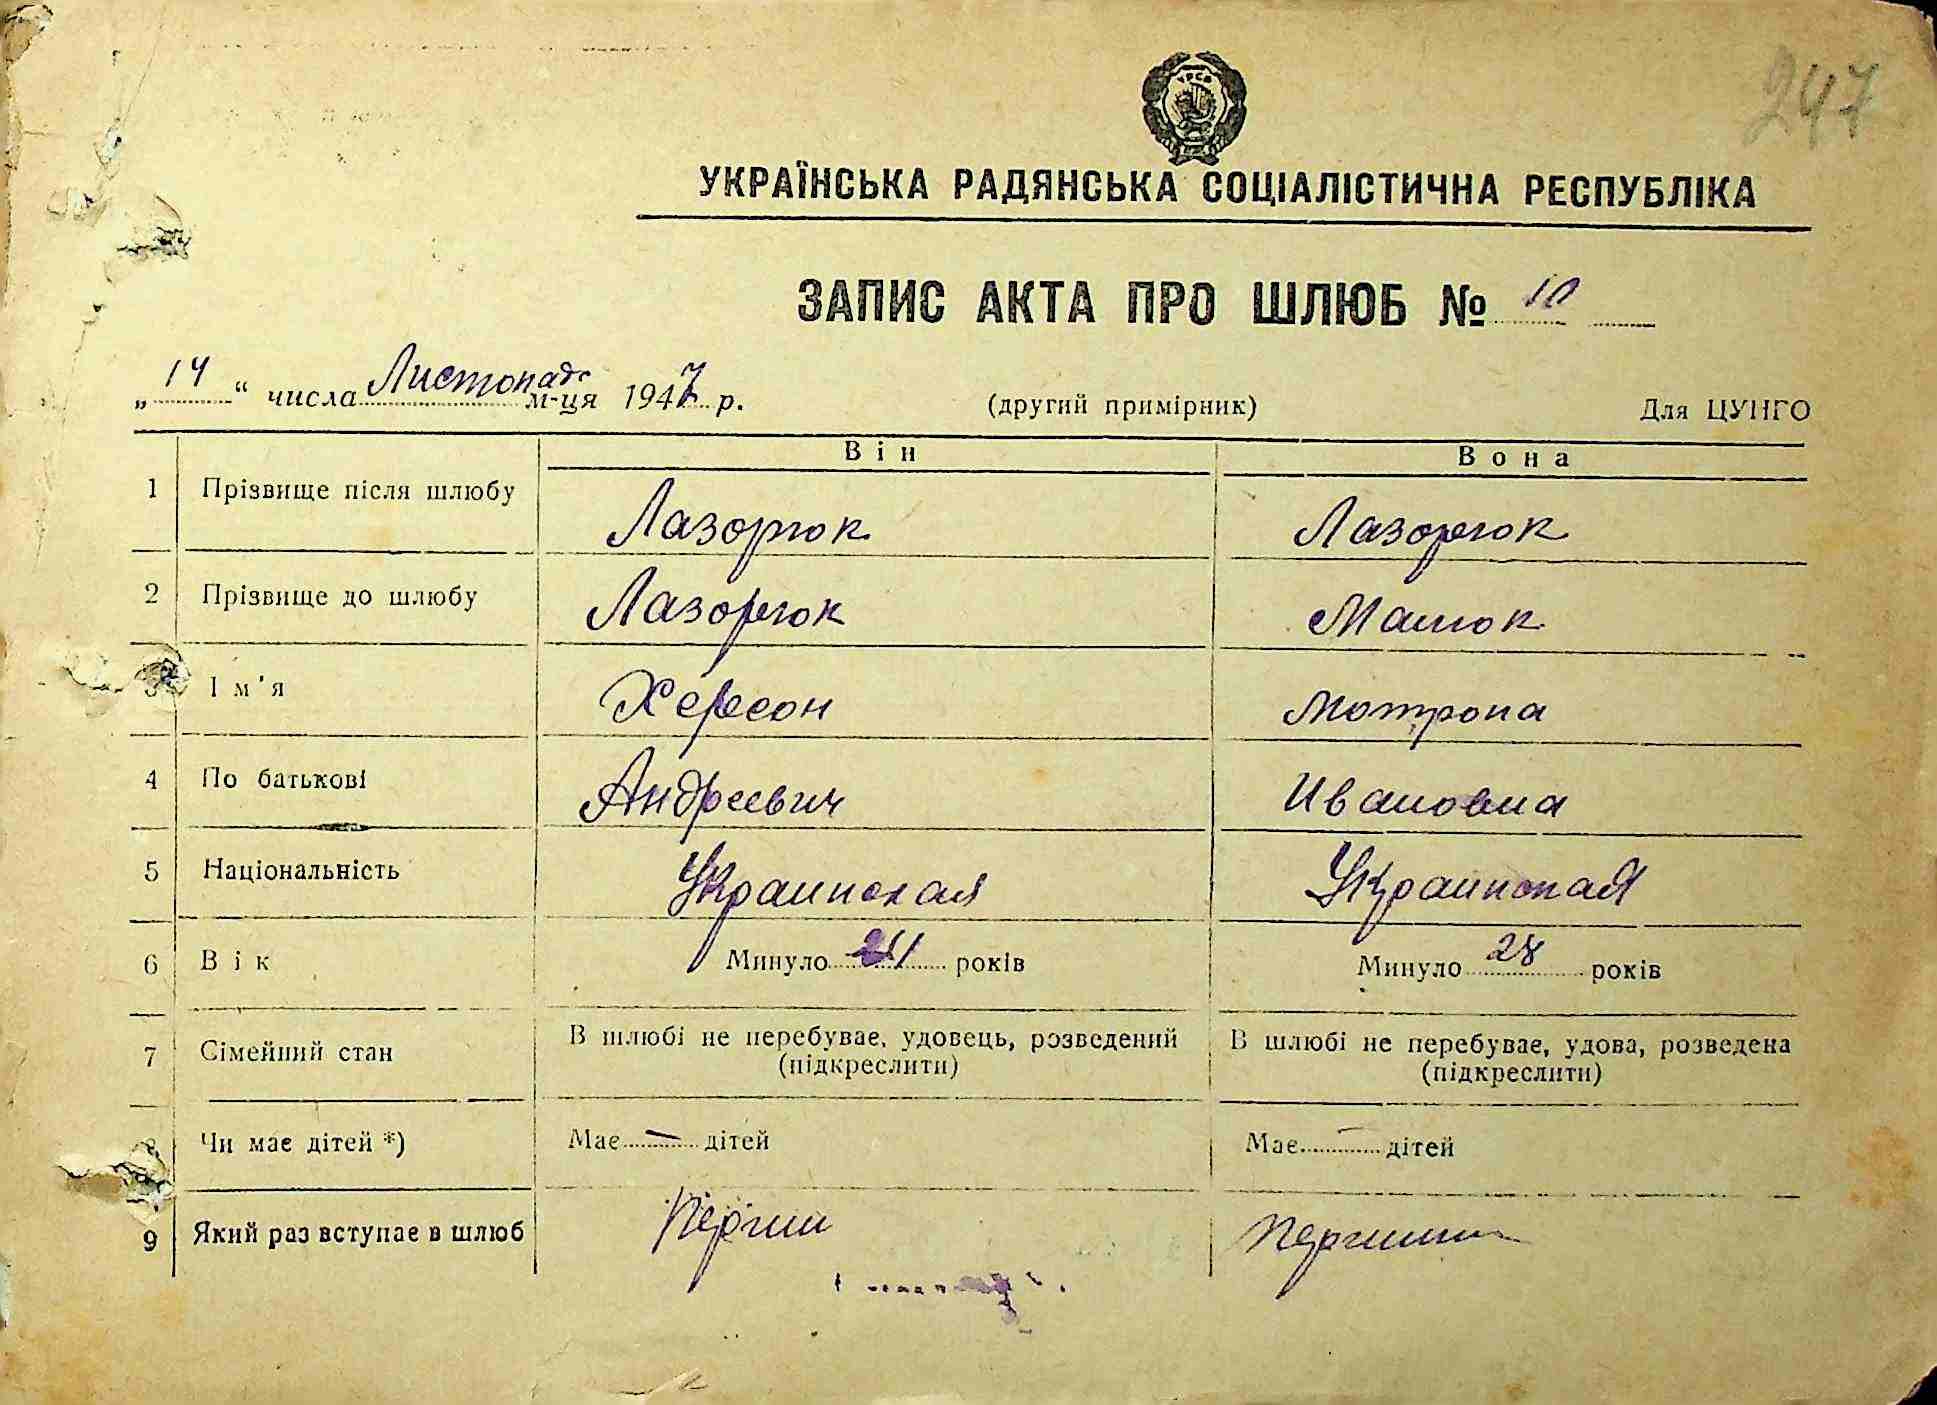 247
УРСР
УКРАЇНСЬКА РАДЯНСЬКА СОЦІАЛІСТИЧНА РЕСПУБЛІКА
ЗАПИС АКТА ПРО ШЛЮБ № 10
„14“ числа Листопада м-ця 1947 р. (другий примірник) Для ЦУНГО
Він Вона
1 Прізвище після шлюбу Лазорюк Лазорюк
2 Прізвище до шлюбу Лазорюк
3 Ім'я Херсон Мотрона
4 По батькові Андреевич Ивановна
5 Національність Украинская Украинская
6 Вік Минуло рoків Минуло 28 років
7 Сімейний стан В шлюбі не перебуває, удовець, розведений (підкреслити) В шлюбі не перебуває, удова, розведена (підкреслити)
8 Чи має дітей *) Має — дітей Має — дітей
9 Який раз вступає в шлюб